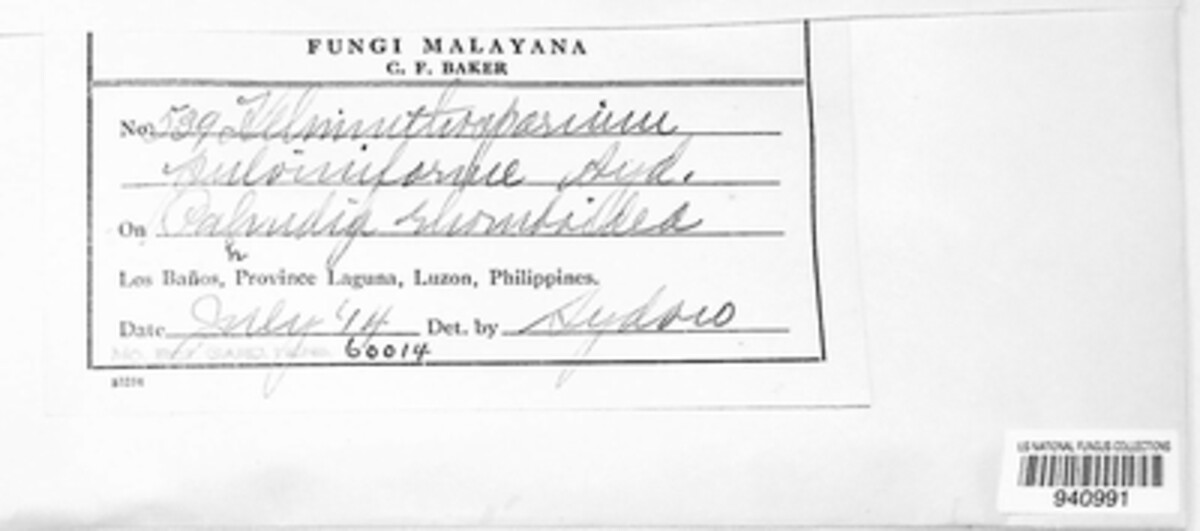 FUNGI MALAYANA
C. F. BAKER
No. 539 Helminthosporium
pulviniforme Syd.
On Palmdig rhomboidea
h
Los Baños, Province Laguna, Luzon, Philippines.
Date July '14 Det. by Sydow
60014
US NATIONAL FUNGUS COLLECTIONS
940991